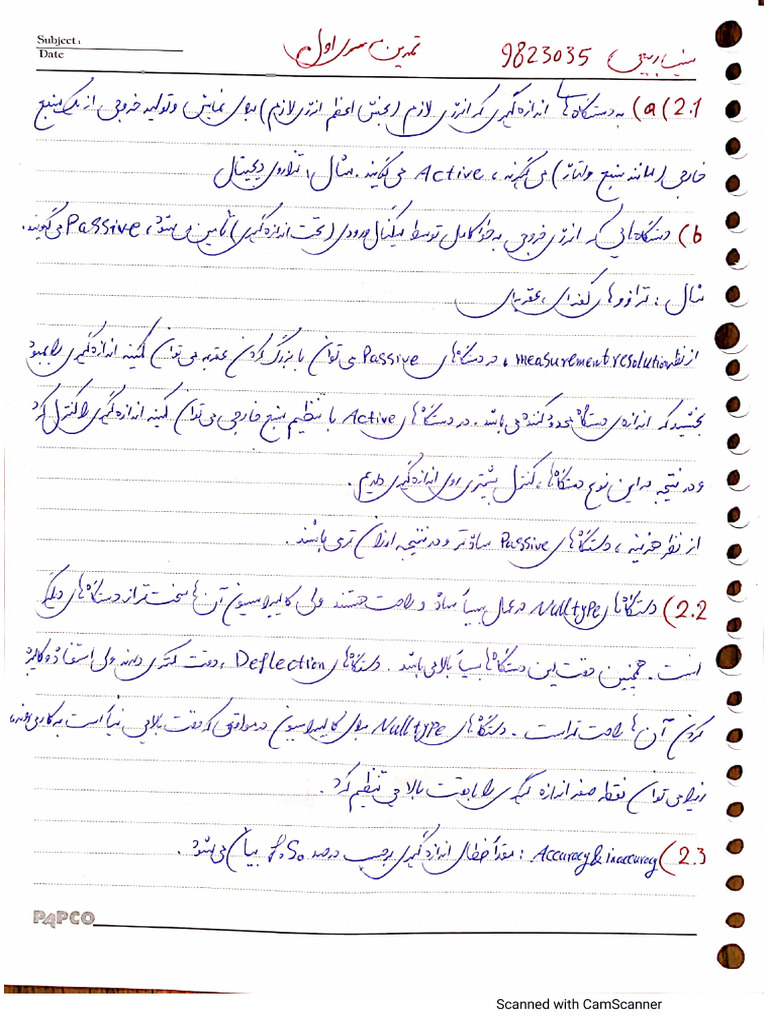 Subject :
Date
تمرین سری اول
9823035
2.1) a) به دستگاه‌های اندازه‌گیری که انرژی لازم (بخش اعظم انرژی لازم) برای نمایش و تولید خروجی از یک منبع
خارجی (مانند منبع ولتاژ) می‌گیرند، Active می‌گویند. مثال: ترازوی دیجیتال
b) دستگاه‌هایی که انرژی خروجی به طور کامل توسط سیگنال ورودی (تحت اندازه‌گیری) تأمین می‌شود، Passive می‌گویند.
مثال: ترازوهای کفه‌ای، عقربه‌ای
از نظر measurement resolution، در دستگاه‌های Passive می‌توان با بزرگ کردن عقربه می‌توان کمینه اندازه‌گیری را بهبود
بخشید که اندازه‌ی دستگاه محدود کننده می‌باشد. در دستگاه‌های Active با تنظیم منبع خارجی می‌توان کمینه اندازه‌گیری را کنترل کرد
و در نتیجه در این نوع دستگاه‌ها، کنترل بیشتری روی اندازه‌گیری داریم.
از نظر هزینه، دستگاه‌های Passive ساده‌تر و در نتیجه ارزان تری باشند.
2.2) دستگاه‌های Null type در عمل بسیار ساده و راحت هستند ولی کالیبراسیون آن‌ها سخت‌تر از دستگاه‌های دیگر
است. همچنین دقت این دستگاه‌ها بسیار بالا می‌باشد. دستگاه‌های Deflection، دقت کمتری دارند ولی استفاده و کالیبره
کردن آن‌ها راحت‌تر است. دستگاه‌های Null type برای کالیبراسیون در مواقعی که دقت بالایی نیاز است به کار می‌روند،
زیرا می‌توان نقطه صفر اندازه گیری را با دقت بالایی تنظیم کرد.
2.3) Accuracy & inaccuracy : مقدار خطای اندازه‌گیری برحسب درصد f.s. بیان می‌شود.
PAPCO
Scanned with CamScanner